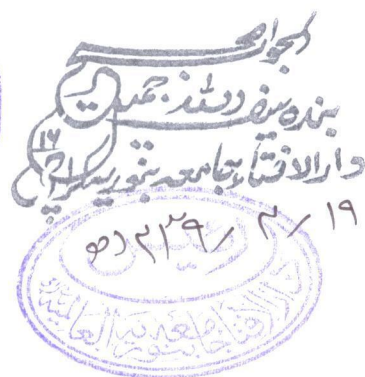 الجواب صحیح
بندہ سیف اللہ جمیل
دارالافتاء جامعہ بنوریہ کراچی ۱۶
۱۹/۳/۱۴۳۹ھ
دارالافتاء جامعہ بنوریہ العالمیہ